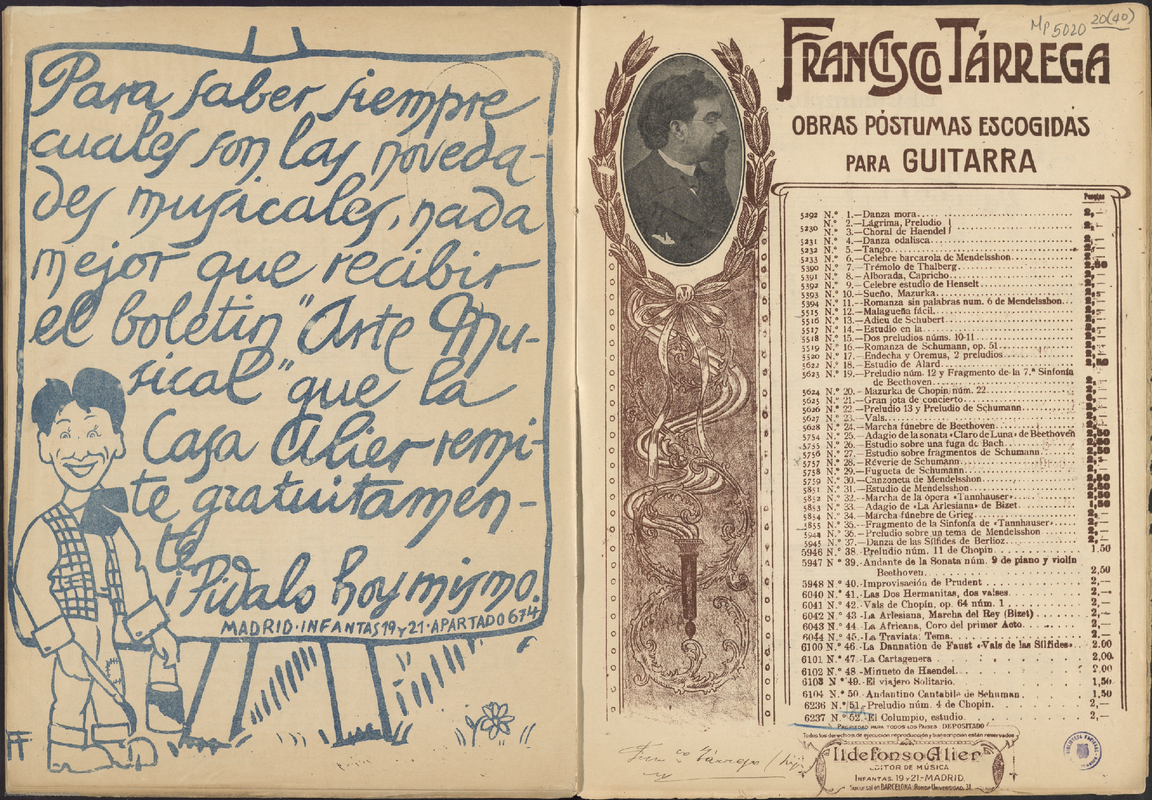 Para saber siempre
cuales son las noveda-
des musicales, nada
mejor que recibir
el boletin "Arte Mu-
sical" que la
Casa Alier remi-
te gratuitamen-
te.
¡Pidalo hoy mismo!
MADRID·INFANTAS 19 y 21·APARTADO 674
MP 5020 20(40)
FRANCISCO TÁRREGA
OBRAS PÓSTUMAS ESCOGIDAS
PARA GUITARRA
Pesetas
5292 N.º 1.—Danza mora 2,—
5230 N.º 2.—Lágrima, Preludio
N.º 3.—Choral de Haendel 2,—
5231 N.º 4.—Danza odalisca 2,—
5232 N.º 5.—Tango 2,—
5233 N.º 6.—Celebre barcarola de Mendelsshon 2,—
5390 N.º 7.—Trémolo de Thalberg 2,50
5391 N.º 8.—Alborada, Capricho
5392 N.º 9.—Celebre estudio de Henselt
5393 N.º 10.—Sueño, Mazurka
5394 N.º 11.—Romanza sin palabras num. 6 de Mendelsshon
5515 N.º 12.—Malagueña fácil
5516 N.º 13.—Adieu de Schubert
5517 N.º 14.—Estudio en la
5518 N.º 15.—Dos preludios núms. 10-11
5519 N.º 16.—Romanza de Schumann, op. 51
5520 N.º 17.—Endecha y Oremus, 2 preludios
5622 N.º 18.—Estudio de Alard
5623 N.º 19.—Preludio núm. 12 y Fragmento de la 7.ª Sinfonía
de Beethoven
5624 N.º 20.—Mazurka de Chopin núm. 22
5625 N.º 21.—Gran jota de concierto
5626 N.º 22.—Preludio 13 y Preludio de Schumann
5627 N.º 23.—Vals
5628 N.º 24.—Marcha fúnebre de Beethoven
5754 N.º 25.—Adagio de la sonata «Claro de Luna» de Beethoven 2,50
5755 N.º 26.—Estudio sobre una fuga de Bach
5756 N.º 27.—Estudio sobre fragmentos de Schumann
5757 N.º 28.—Réverie de Schumann
5758 N.º 29.—Fugueta de Schumann
5759 N.º 30.—Canzoneta de Mendelsshon
5851 N.º 31.—Estudio de Mendelsshon
5852 N.º 32.—Marcha de la ópera «Tannhauser»
5853 N.º 33.—Adagio de «La Arlesiana» de Bizet
5854 N.º 34.—Marcha fúnebre de Grieg
5855 N.º 35.—Fragmento de la Sinfonía de «Tannhauser»
5944 N.º 36.—Preludio sobre un tema de Mendelsshon
5945 N.º 37.—Danza de las Sílfides de Berlioz
5946 N.º 38.—Preludio núm. 11 de Chopin 1.50
5947 N.º 39.—Andante de la Sonata núm. 9 de piano y violín
Beethoven 2,50
5948 N.º 40.—Improvisación de Prudent 2,—
6040 N.º 41.—Las Dos Hermanitas, dos valses 2,—
6041 N.º 42.—Vals de Chopin, op. 64 núm. 1 2,—
6042 N.º 43.—La Arlesiana, Marcha del Rey (Bizet) 2,—
6043 N.º 44.—La Africana, Coro del primer Acto 2,—
6044 N.º 45.—La Traviata; Tema 2,—
6100 N.º 46.—La Dannation de Faust «Vals de las Sílfides» 2.00
6101 N.º 47.—La Cartagenera 2,00
6102 N.º 48.—Minueto de Haendel 2.00
6103 N.º 49.—El viajero Solitario 1,50
6104 N.º 50.—Andantino Cantabile de Schuman 1,50
6236 N.º 51.—Preludio núm. 4 de Chopin 2,—
6237 N.º 52.—El Columpio, estudio 2,—
PROPIEDAD PARA TODOS LOS PAISES DEPOSITADO
Todos los derechos de ejecucion, reproducción y transcripción están reservados
Ildefonso Alier
EDITOR DE MÚSICA
INFANTAS, 19 y 21.-MADRID.
Sucursal en BARCELONA, Ronda Universidad, 31.
Francisco Tárrega
BIBLIOTECA NACIONAL